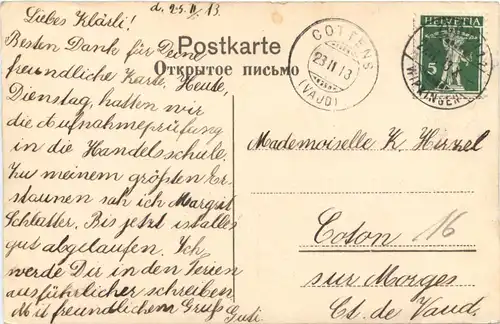 d. 25. II. 13.
Liebes Klärli!
Besten Dank für Deine
freundliche Karte. Heute,
Dienstag, hatten wir
die Aufnahmeprüfung
in die Handelsschule.
Zu meinem größten Er-
staunen sah ich Margrit
Schlatter. Bis jetzt ist alles
gut abgelaufen. Ich
werde Dir in den Ferien
ausführlicher schreiben
Mit freundlichem Gruß
Postkarte
Открытое письмо
COTTENS
(VAUD)
HELVETIA
5
Mademoiselle K. Hirzel
16
Coton
sur Morges
Ct. de Vaud.